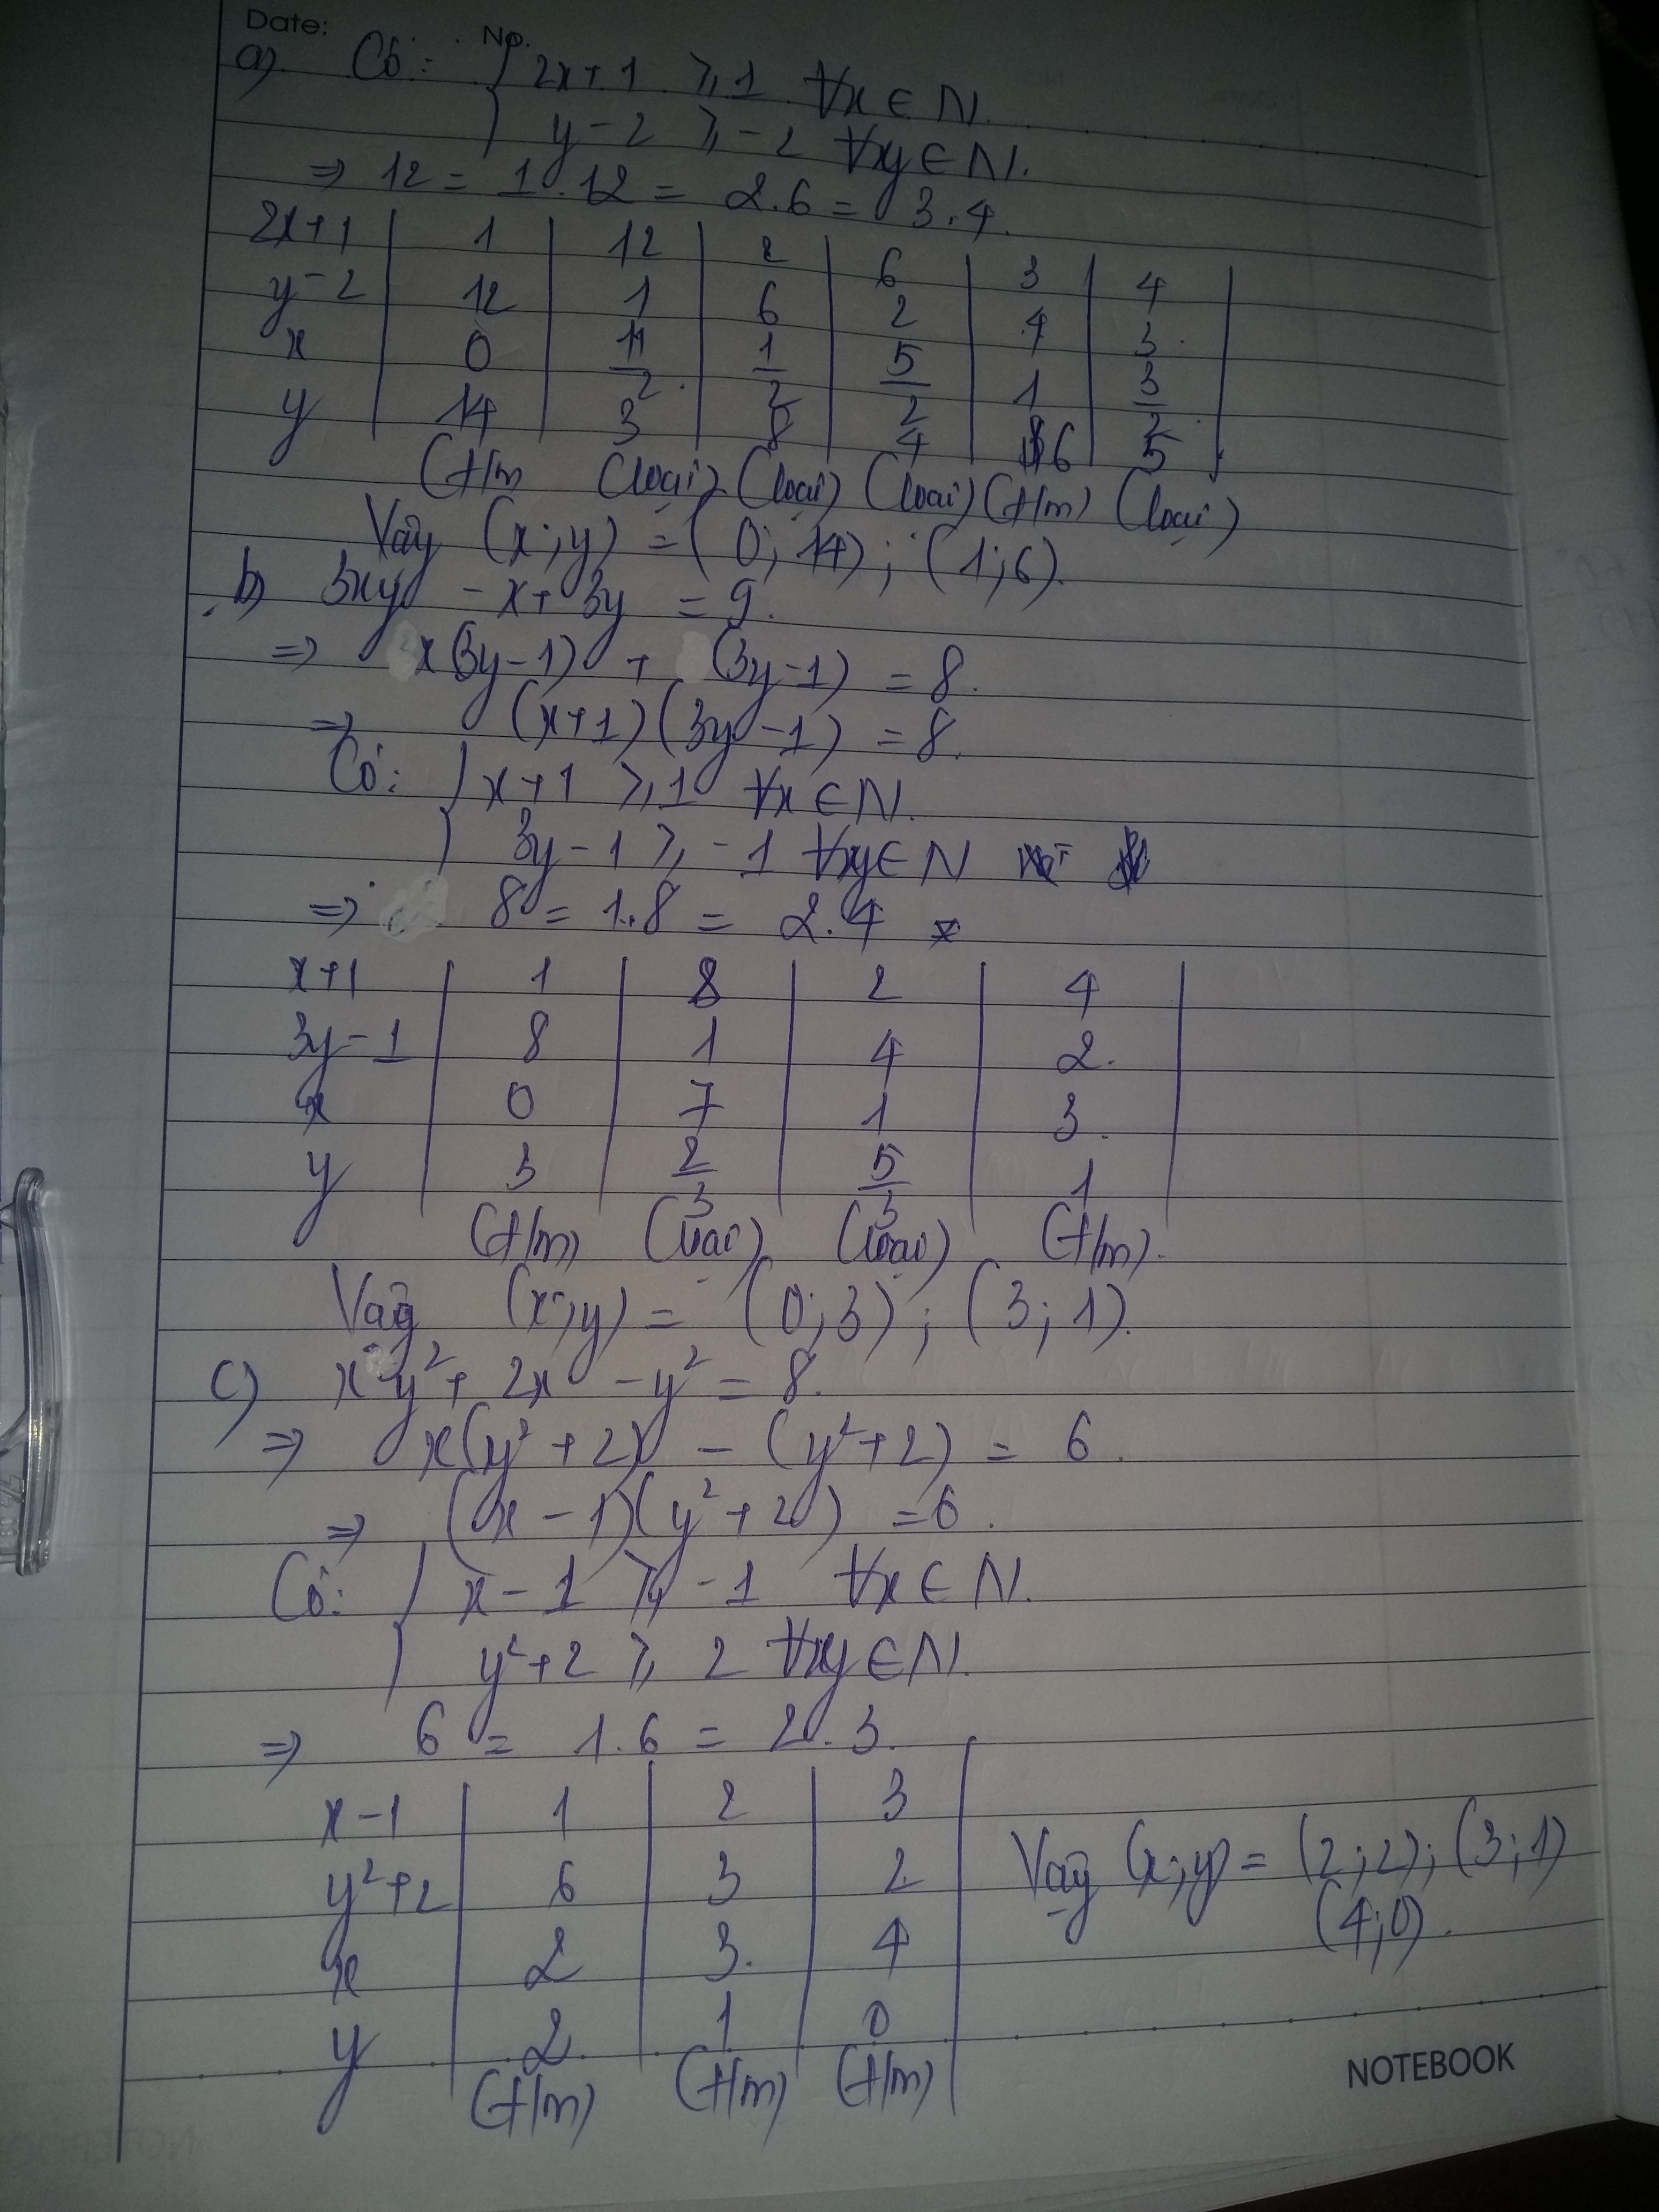 Date: No.
a) Có: { 2x+1 ≥ 1 ∀x ∈ N.
y-2 ≥ -2 ∀y ∈ N.
=> 12 = 1.12 = 2.6 = 3.4.
2x+1 | 1 | 12 | 2 | 6 | 3 | 4 |
y-2 | 12 | 1 | 6 | 2 | 4 | 3 |
x | 0 | 11/2 | 1/2 | 5/2 | 1 | 3/2 |
y | 14 | 3 | 8 | 4 | 6 | 5 |
(t/m (loại) (loại) (loại) (t/m) (loại)
Vậy (x;y) = (0;14); (1;6).
b) 3xy - x + 3y = 9.
=> x(3y-1) + (3y-1) = 8.
=> (x+1)(3y-1) = 8.
Có: { x+1 ≥ 1 ∀x ∈ N.
3y-1 ≥ -1 ∀y ∈ N
=> 8 = 1.8 = 2.4
x+1 | 1 | 8 | 2 | 4 |
3y-1 | 8 | 1 | 4 | 2. |
x | 0 | 7 | 1 | 3. |
y | 3 | 2/3 | 5/3 | 1 |
(t/m) (loại) (loại) (t/m).
Vậy (x;y) = (0;3); (3;1).
c) xy² + 2x - y² = 8.
=> x(y²+2) - (y²+2) = 6.
=> (x-1)(y²+2) = 6.
Có: { x-1 ≥ -1 ∀x ∈ N.
y²+2 ≥ 2 ∀y ∈ N.
=> 6 = 1.6 = 2.3.
x-1 | 1 | 2 | 3 |
y²+2 | 6 | 3 | 2 |
x | 2 | 3. | 4 |
y | 2 | 1 | 0 |
(t/m) (t/m) (t/m)
Vậy (x;y) = (2;2); (3;1)
(4;0).
NOTEBOOK